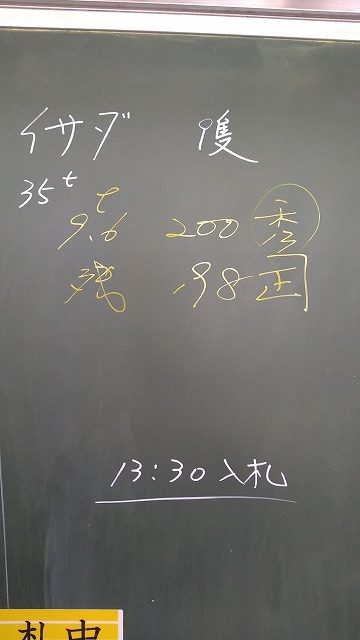 イサダ 隻
35t
9.6t 200 秀
残 198 正
13:30 入札
札中